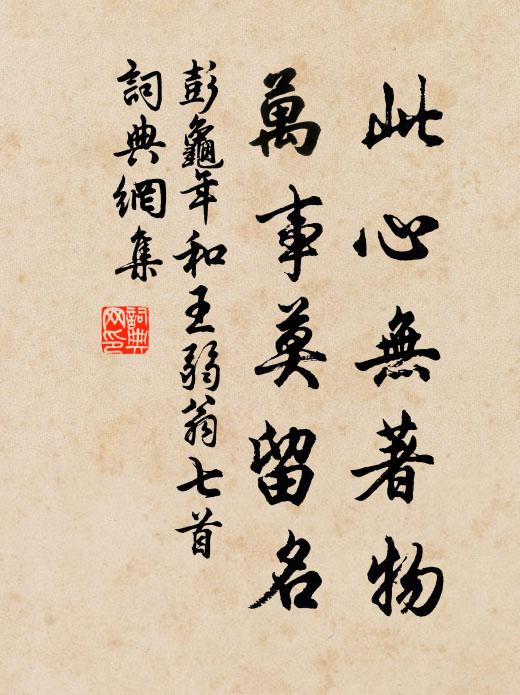 此心無著物
萬事莫留名
彭龜年和王弱翁七首
詞典網集
詞典
网印